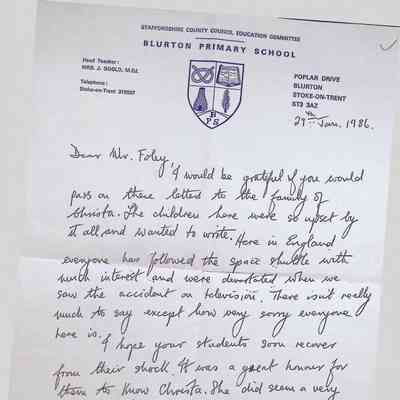 STAFFORDSHIRE COUNTY COUNCIL EDUCATION COMMITTEE
BLURTON PRIMARY SCHOOL
Head Teacher:
MRS. J. GOOLD, M.Ed.
Telephone:
Stoke-on-Trent
B
P S
POPLAR DRIVE
BLURTON
STOKE-ON-TRENT
ST3 3AZ
29th Jan. 1986.
Dear Mr. Foley,
I would be grateful if you would
pass on these letters to the family of
Christa. The children here were so upset by
it all and wanted to write. Here in England
everyone has followed the space shuttle with
much interest and were devastated when we
saw the accident on television. There isn't really
much to say except how very sorry everyone
here is.
I hope your students soon recover
from their shock. It was a great honour for
them to know Christa. She did seem a very